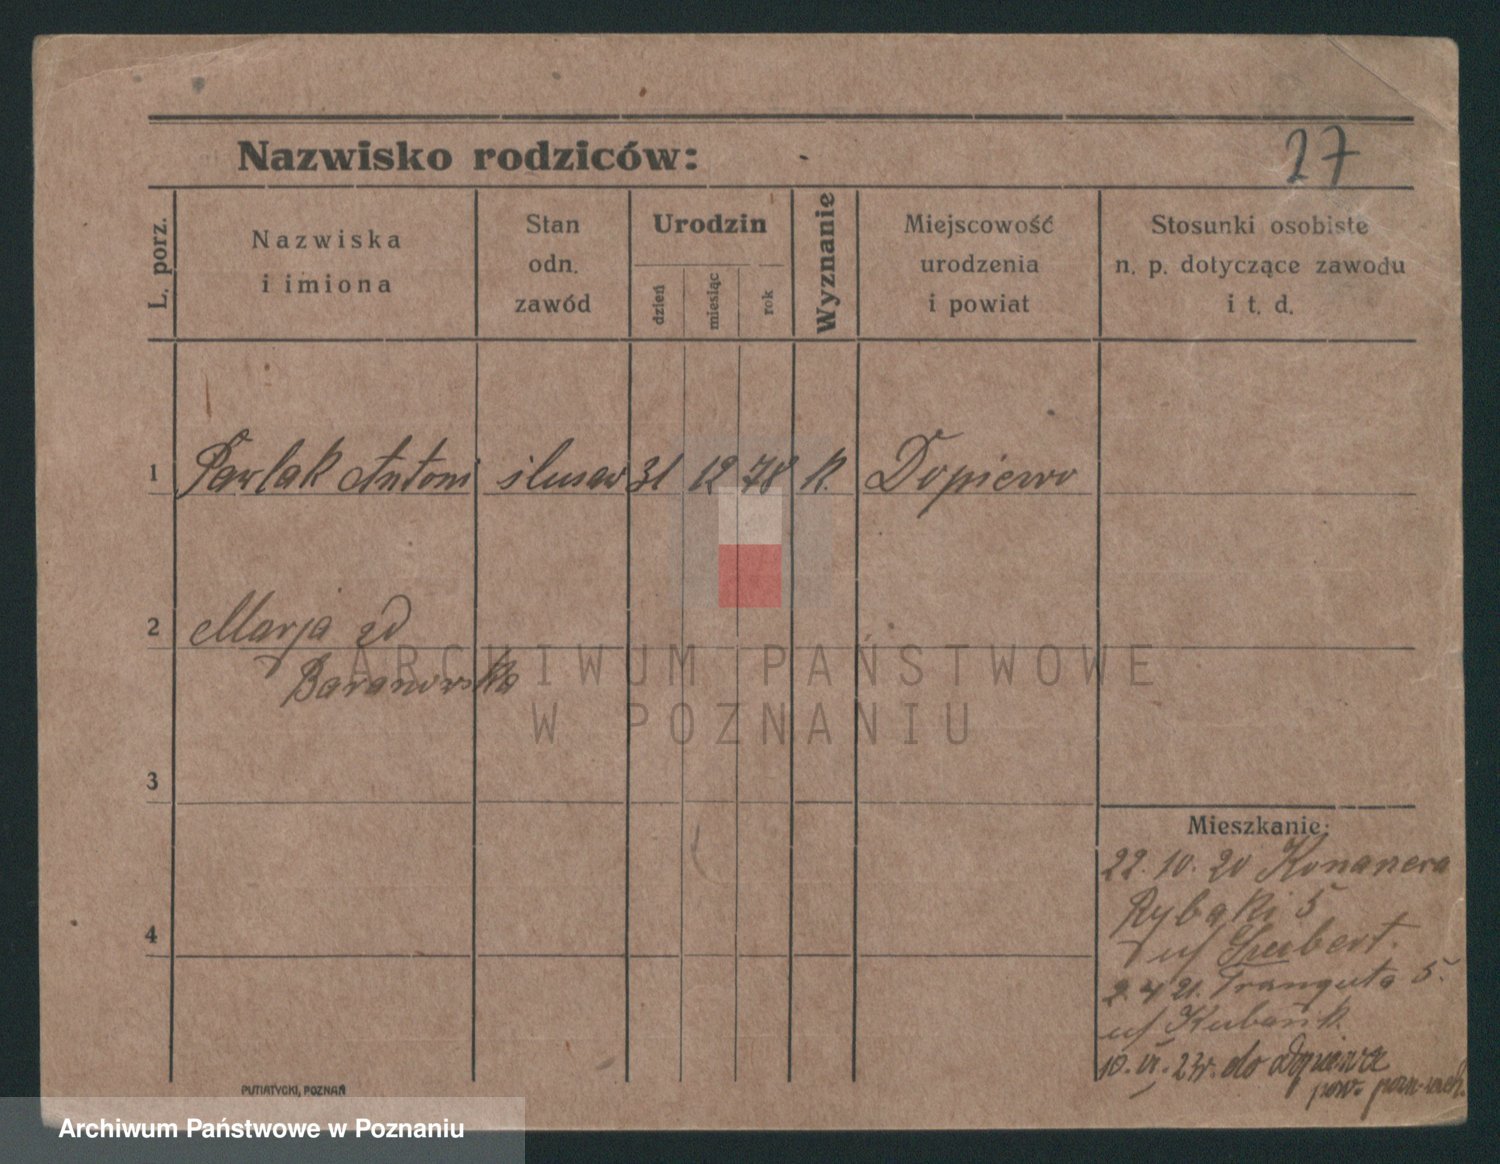 Nazwisko rodziców:
27
L. porz.
Nazwiska
i imiona
Stan
odn.
zawód
Urodzin
dzień
miesiąc
rok
Wyznanie
Miejscowość
urodzenia
i powiat
Stosunki osobiste
n. p. dotyczące zawodu
i t. d.
1 Pawlak Antoni ślusar 31 12 78 k. Dopiewo
2 Marja zd
Baranowska
3
4
Mieszkanie:
22. 10. 20
Rybaki 5
u/
2. 4 21. Trauguta 5.
u/
10. VI. 23r. do Dopiewca
pow. pozn-zach.
PUTIATYCKI, POZNAŃ
ARCHIWUM PAŃSTWOWE
W POZNANIU
Archiwum Państwowe w Poznaniu